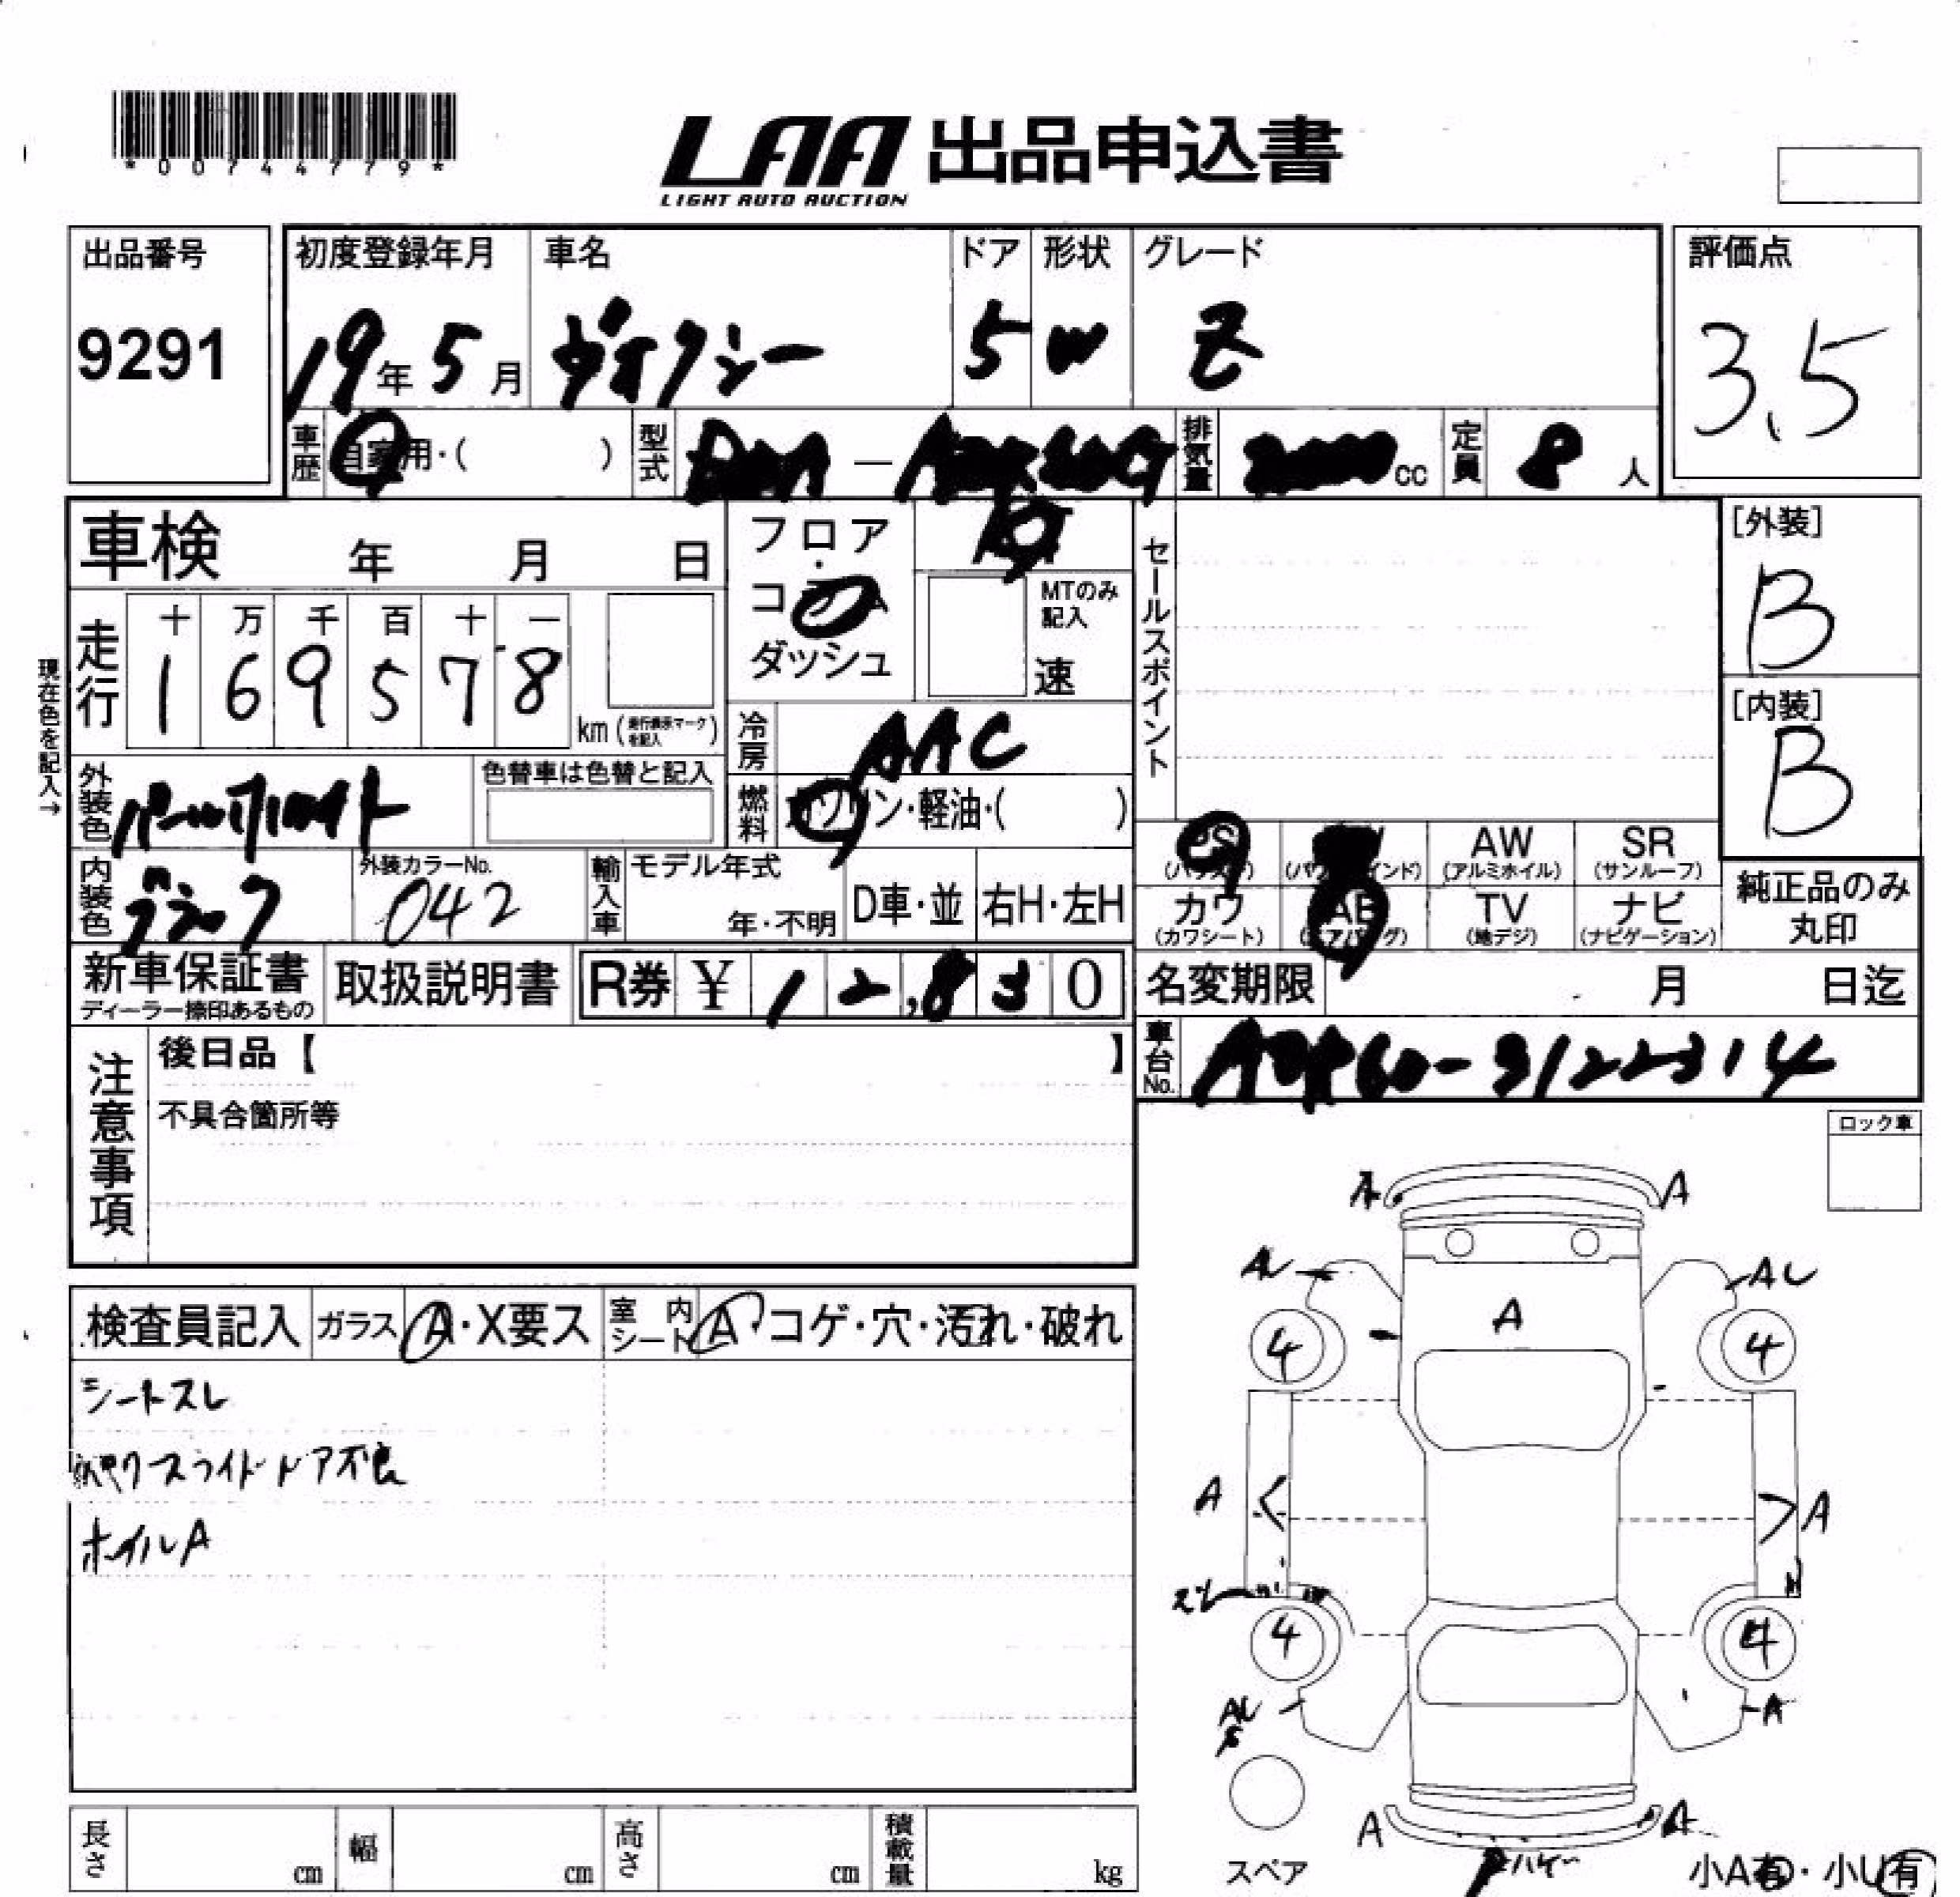 *00744779*
LAA 出品申込書
LIGHT AUTO AUCTION
出品番号
9291
初度登録年月 車名 ドア 形状 グレード
19年5月 ヴォクシー 5 W Z
評価点
3.5
車歴 自家用・( ) 型式 排気量 cc 定員 8 人
車検 年 月 日
フロア・コラム ダッシュ
MTのみ記入
速
セールスポイント
[外装]
B
[内装]
B
現在色を記入→
走行 十 万 千 百 十 一
1 6 9 5 7 8
km(走行表示マークを記入)
冷房 AAC
外装色 パールホワイト 色替車は色替と記入
燃料 ガソリン・軽油・( )
内装色 ブラック 外装カラーNo. 042
輸入車 モデル年式 年・不明 D車・並 右H・左H
PS
AW SR
(アルミホイル) (サンルーフ)
カワ AB TV ナビ
(カワシート) (エアバッグ) (地デジ) (ナビゲーション)
純正品のみ丸印
新車保証書 取扱説明書 R券 ¥ 1 2,8 3 0
ディーラー捺印あるもの
名変期限 月 日迄
車台No. -3122314
注意事項
後日品【 】
不具合箇所等
ロック車
検査員記入 ガラス A・X要ス 室内シート A・コゲ・穴・汚れ・破れ
シートスレ
スライドドア不良
ホイルA
A A
AU AU
A
4 4
A A
4 4
AU A
A A
スペア
小A有・小U有
長さ cm 幅 cm 高さ cm 積載量 kg